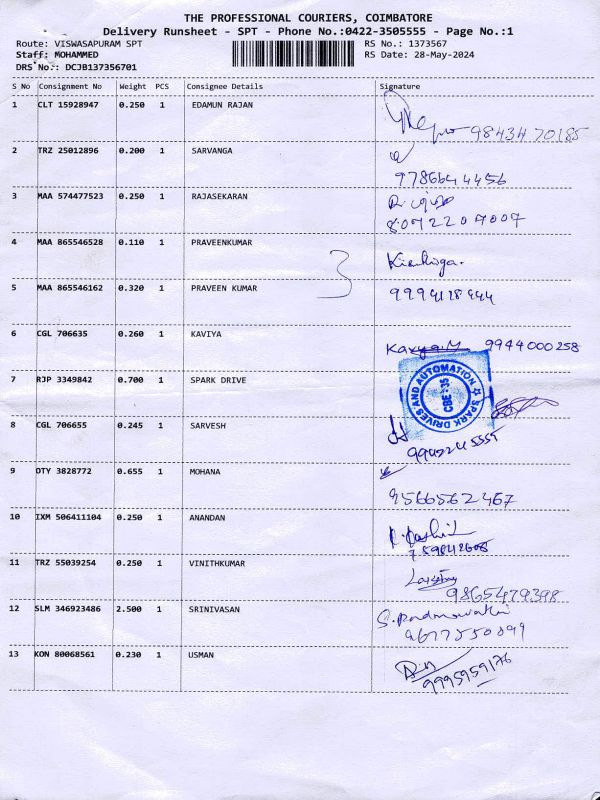 THE PROFESSIONAL COURIERS, COIMBATORE
Delivery Runsheet - SPT - Phone No.:0422-3505555 - Page No.:1
Route: VISWASAPURAM SPT
RS No.: 1373567
Staff: MOHAMMED
RS Date: 28-May-2024
DRS No.: DCJB137356701
S No Consignment No Weight PCS Consignee Details Signature
1 CLT 15928947 0.250 1 EDAMUN RAJAN
98434 70185
2 TRZ 25012896 0.200 1 SARVANGA
9786644456
3 MAA 574477523 0.250 1 RAJASEKARAN
8072207007
4 MAA 865546528 0.110 1 PRAVEENKUMAR
3
5 MAA 865546162 0.320 1 PRAVEEN KUMAR
6 CGL 706635 0.260 1 KAVIYA
Kavya.M 9944000258
7 RJP 3349842 0.700 1 SPARK DRIVE
SPARK DRIVES AND AUTOMATION
CBE-35
8 CGL 706655 0.245 1 SARVESH
9942245555
9 OTY 3828772 0.655 1 MOHANA
9566562467
10 IXM 506411104 0.250 1 ANANDAN
11 TRZ 55039254 0.250 1 VINITHKUMAR
9865479398
12 SLM 346923486 2.500 1 SRINIVASAN
9677550099
13 KON 80068561 0.230 1 USMAN
9995959176